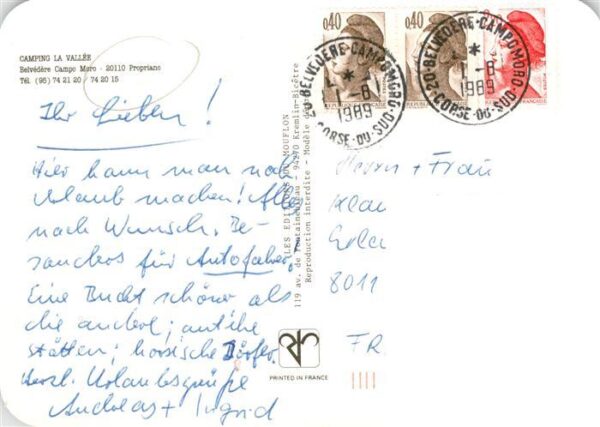 CAMPING LA VALLÉE
Belvédère Campo Moro - 20110 Propriano
Tél. (95) 74 21 20 / 74 20 15
Ihr Lieben!
Hier kann man noch
Urlaub machen! Alles
nach Wunsch. Be-
sonders für Autofahrer,
Eine Bucht schöner als
die andere; antike
Stätten; korsische Dörfer.
Herzl. Urlaubsgrüße
Andreas + Ingrid
LES EDITIONS DU MOUFLON
119 av. de Fontainebleau - 94270 Kremlin-Bicêtre
Reproduction interdite - Modèle
PRINTED IN FRANCE
0,40
0,40
20 BELVEDERE-CAMPOMORO
7-8
1989
CORSE-DU-SUD
20 BELVEDERE-CAMPOMORO
7-8
1989
CORSE-DU-SUD
Herrn + Frau
8011